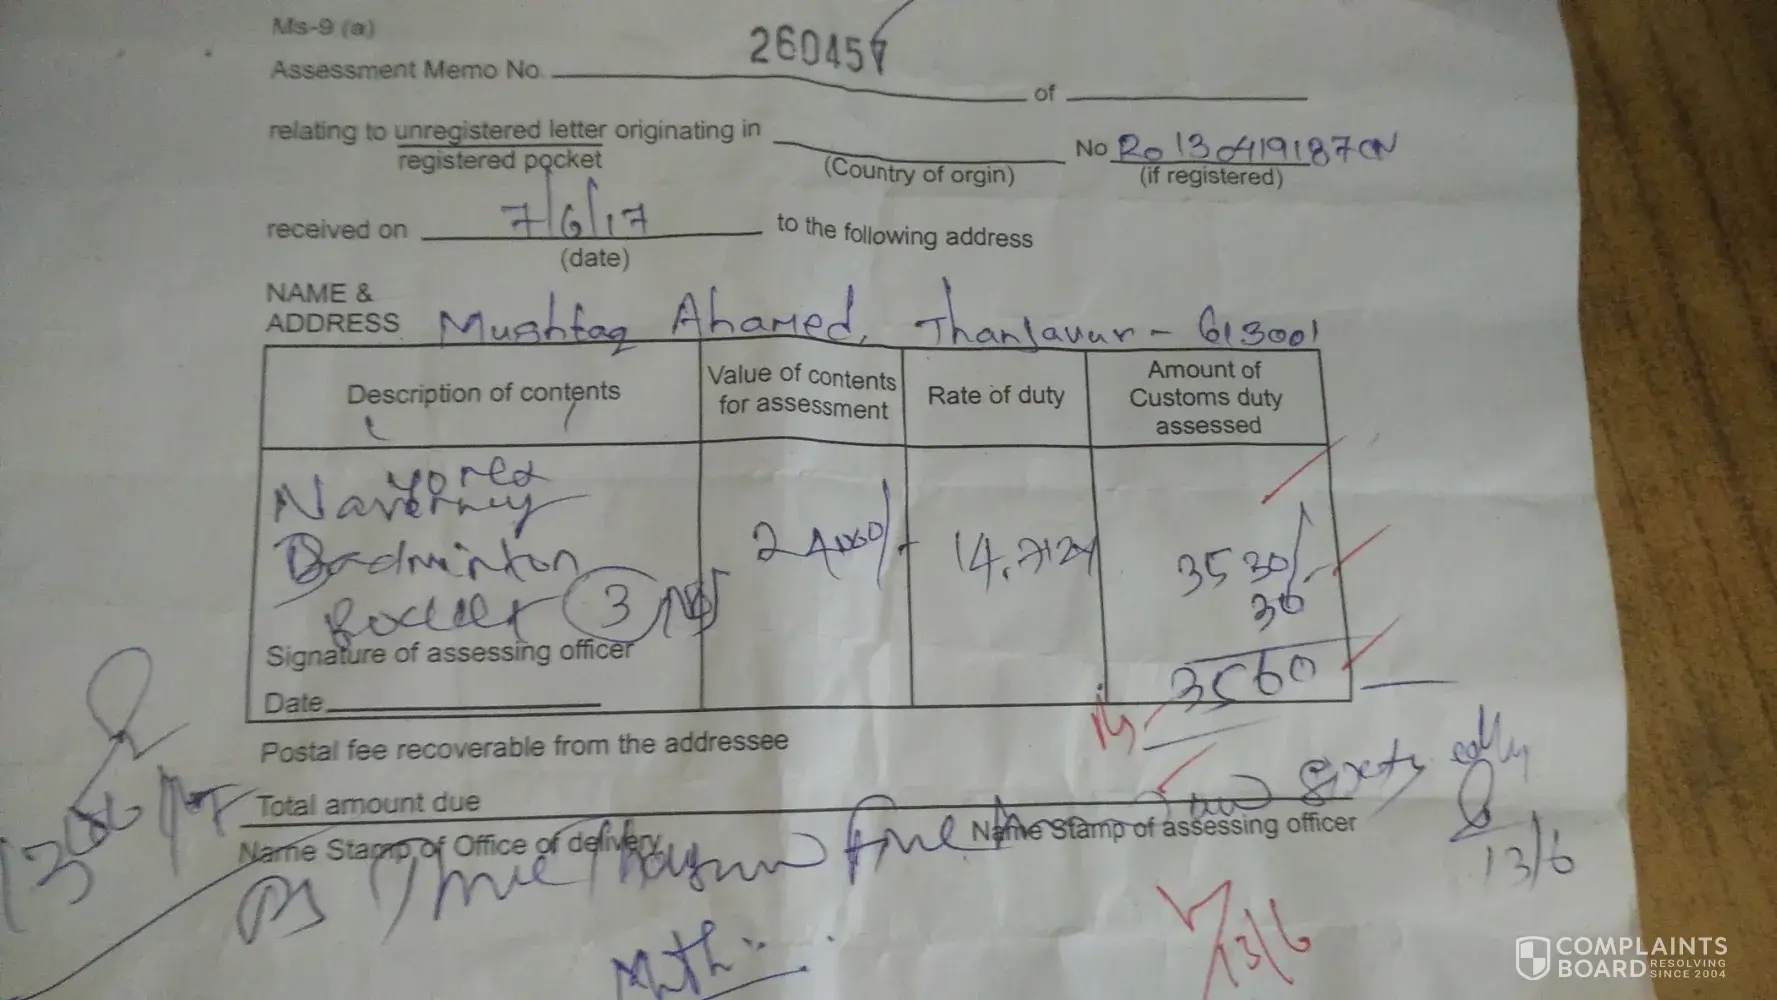 Ms-9 (a)
260457
Assessment Memo No. of
relating to unregistered letter originating in No Ro 130419187CN
registered pocket (Country of orgin) (if registered)
received on 7/6/17 to the following address
(date)
NAME &
ADDRESS Mushtaq Ahamed, Thanjavur - 613001
Description of contents
Value of contents for assessment
Rate of duty
Amount of Customs duty assessed
Badminton
3
3530/-
30
3560
Signature of assessing officer
Date
Postal fee recoverable from the addressee
Total amount due
Name Stamp of Office of delivery
Name Stamp of assessing officer
Rs Three Thousand five Sixty only
13/6
13/6
COMPLAINTS
BOARD RESOLVING SINCE 2004